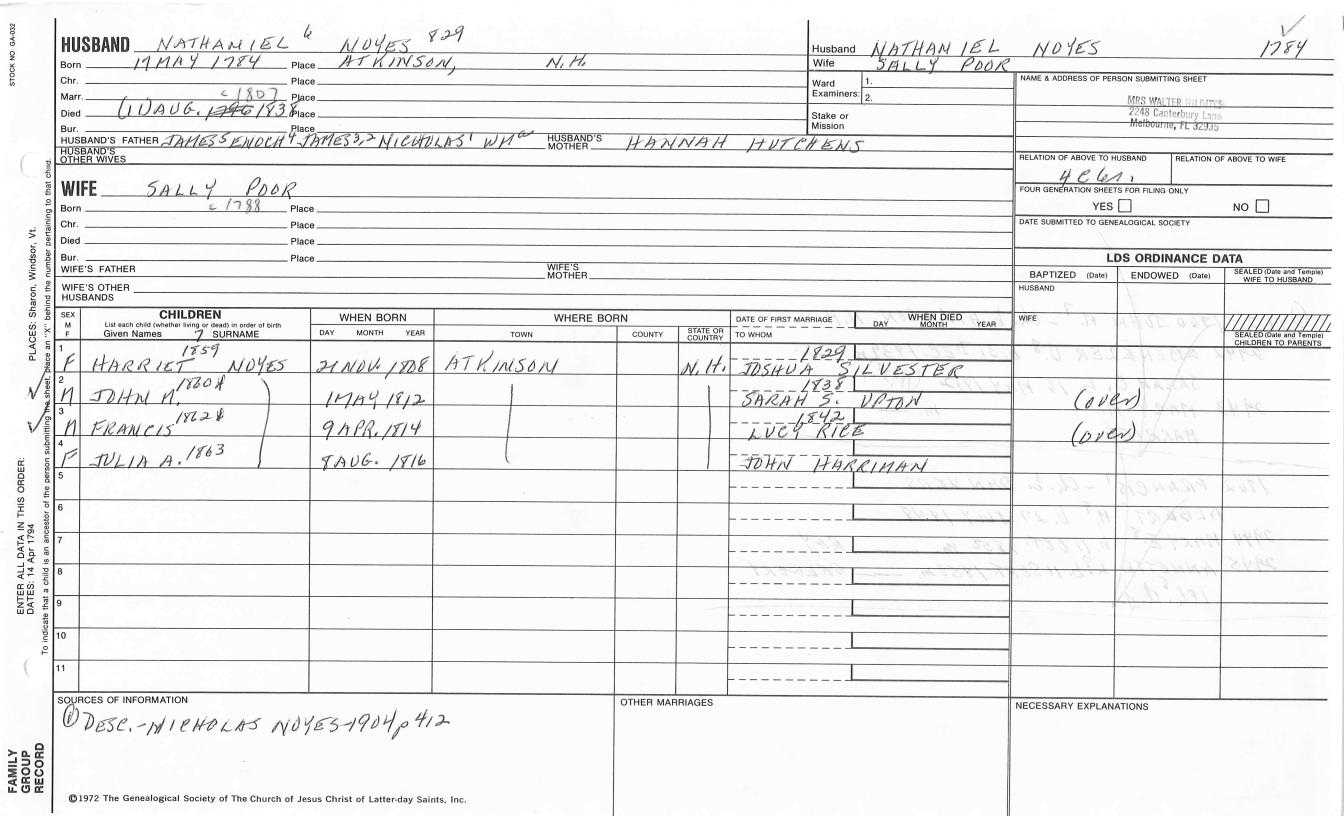 STOCK NO. GA-032
HUSBAND NATHANIEL 6 NOYES 829
Born 17 MAY 1784 Place ATKINSON, N.H.
Chr. Place
Marr. c 1807 Place
Died (1) AUG. 1838 Place
Bur. Place
HUSBAND'S FATHER JAMES5 ENOCH4 JAMES3,2 NICHOLAS1 HUSBAND'S MOTHER HANNAH HUTCHENS
HUSBAND'S OTHER WIVES
Husband NATHANIEL NOYES 1784
Wife SALLY POOR
Ward Examiners: 1.
2.
Stake or Mission
NAME & ADDRESS OF PERSON SUBMITTING SHEET
MRS WALTER
2248 Canterbury Lane
Melbourne, FL 32935
RELATION OF ABOVE TO HUSBAND RELATION OF ABOVE TO WIFE
FOUR GENERATION SHEETS FOR FILING ONLY
YES NO
DATE SUBMITTED TO GENEALOGICAL SOCIETY
WIFE SALLY POOR
Born c 1788 Place
Chr. Place
Died Place
Bur. Place
WIFE'S FATHER WIFE'S MOTHER
WIFE'S OTHER HUSBANDS
LDS ORDINANCE DATA
BAPTIZED (Date) ENDOWED (Date) SEALED (Date and Temple) WIFE TO HUSBAND
HUSBAND
WIFE
SEALED (Date and Temple) CHILDREN TO PARENTS
SEX M F CHILDREN WHEN BORN WHERE BORN DATE OF FIRST MARRIAGE WHEN DIED
List each child (whether living or dead) in order of birth
Given Names 7 SURNAME DAY MONTH YEAR TOWN COUNTY STATE OR COUNTRY TO WHOM DAY MONTH YEAR
1 F HARRIET 1859 NOYES 21 NOV. 1808 ATKINSON N.H. 1829 JOSHUA SILVESTER
2 M JOHN N. 1860 1 MAY 1812 1838 SARAH S. UPTON (over)
3 M FRANCIS 1862 9 APR. 1814 1842 LUCY RICE (over)
4 F JULIA A. 1863 8 AUG. 1816 JOHN HARRIMAN
5
6
7
8
9
10
11
SOURCES OF INFORMATION OTHER MARRIAGES NECESSARY EXPLANATIONS
(1) DESC.-NICHOLAS NOYES-1904 p 412
©1972 The Genealogical Society of The Church of Jesus Christ of Latter-day Saints, Inc.
FAMILY GROUP RECORD
ENTER ALL DATA IN THIS ORDER:
DATES: 14 Apr 1794
PLACES: Sharon, Windsor, Vt.
To indicate that a child is an ancestor of the person submitting the sheet, place an "X" behind the number pertaining to that child.